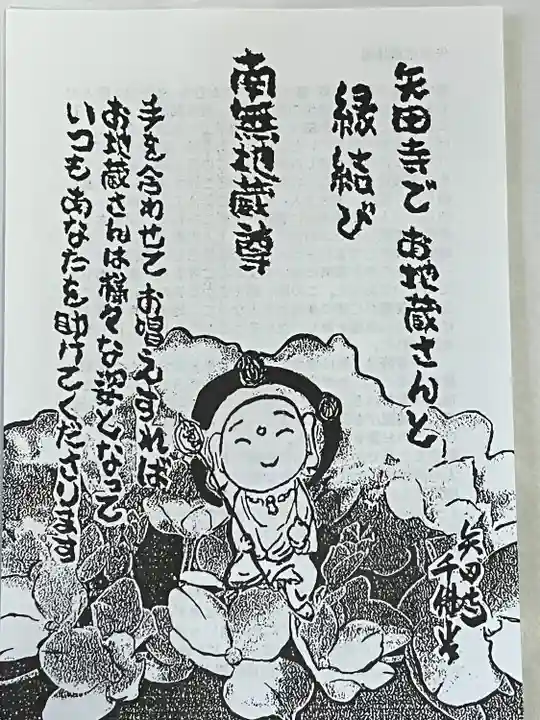 矢田寺で お地蔵さんと
縁結び
南無地蔵尊
手を合わせて お唱えすれば
お地蔵さんは様々な姿となって
いつも あなたを助けてくださいます
矢田寺
千佛堂